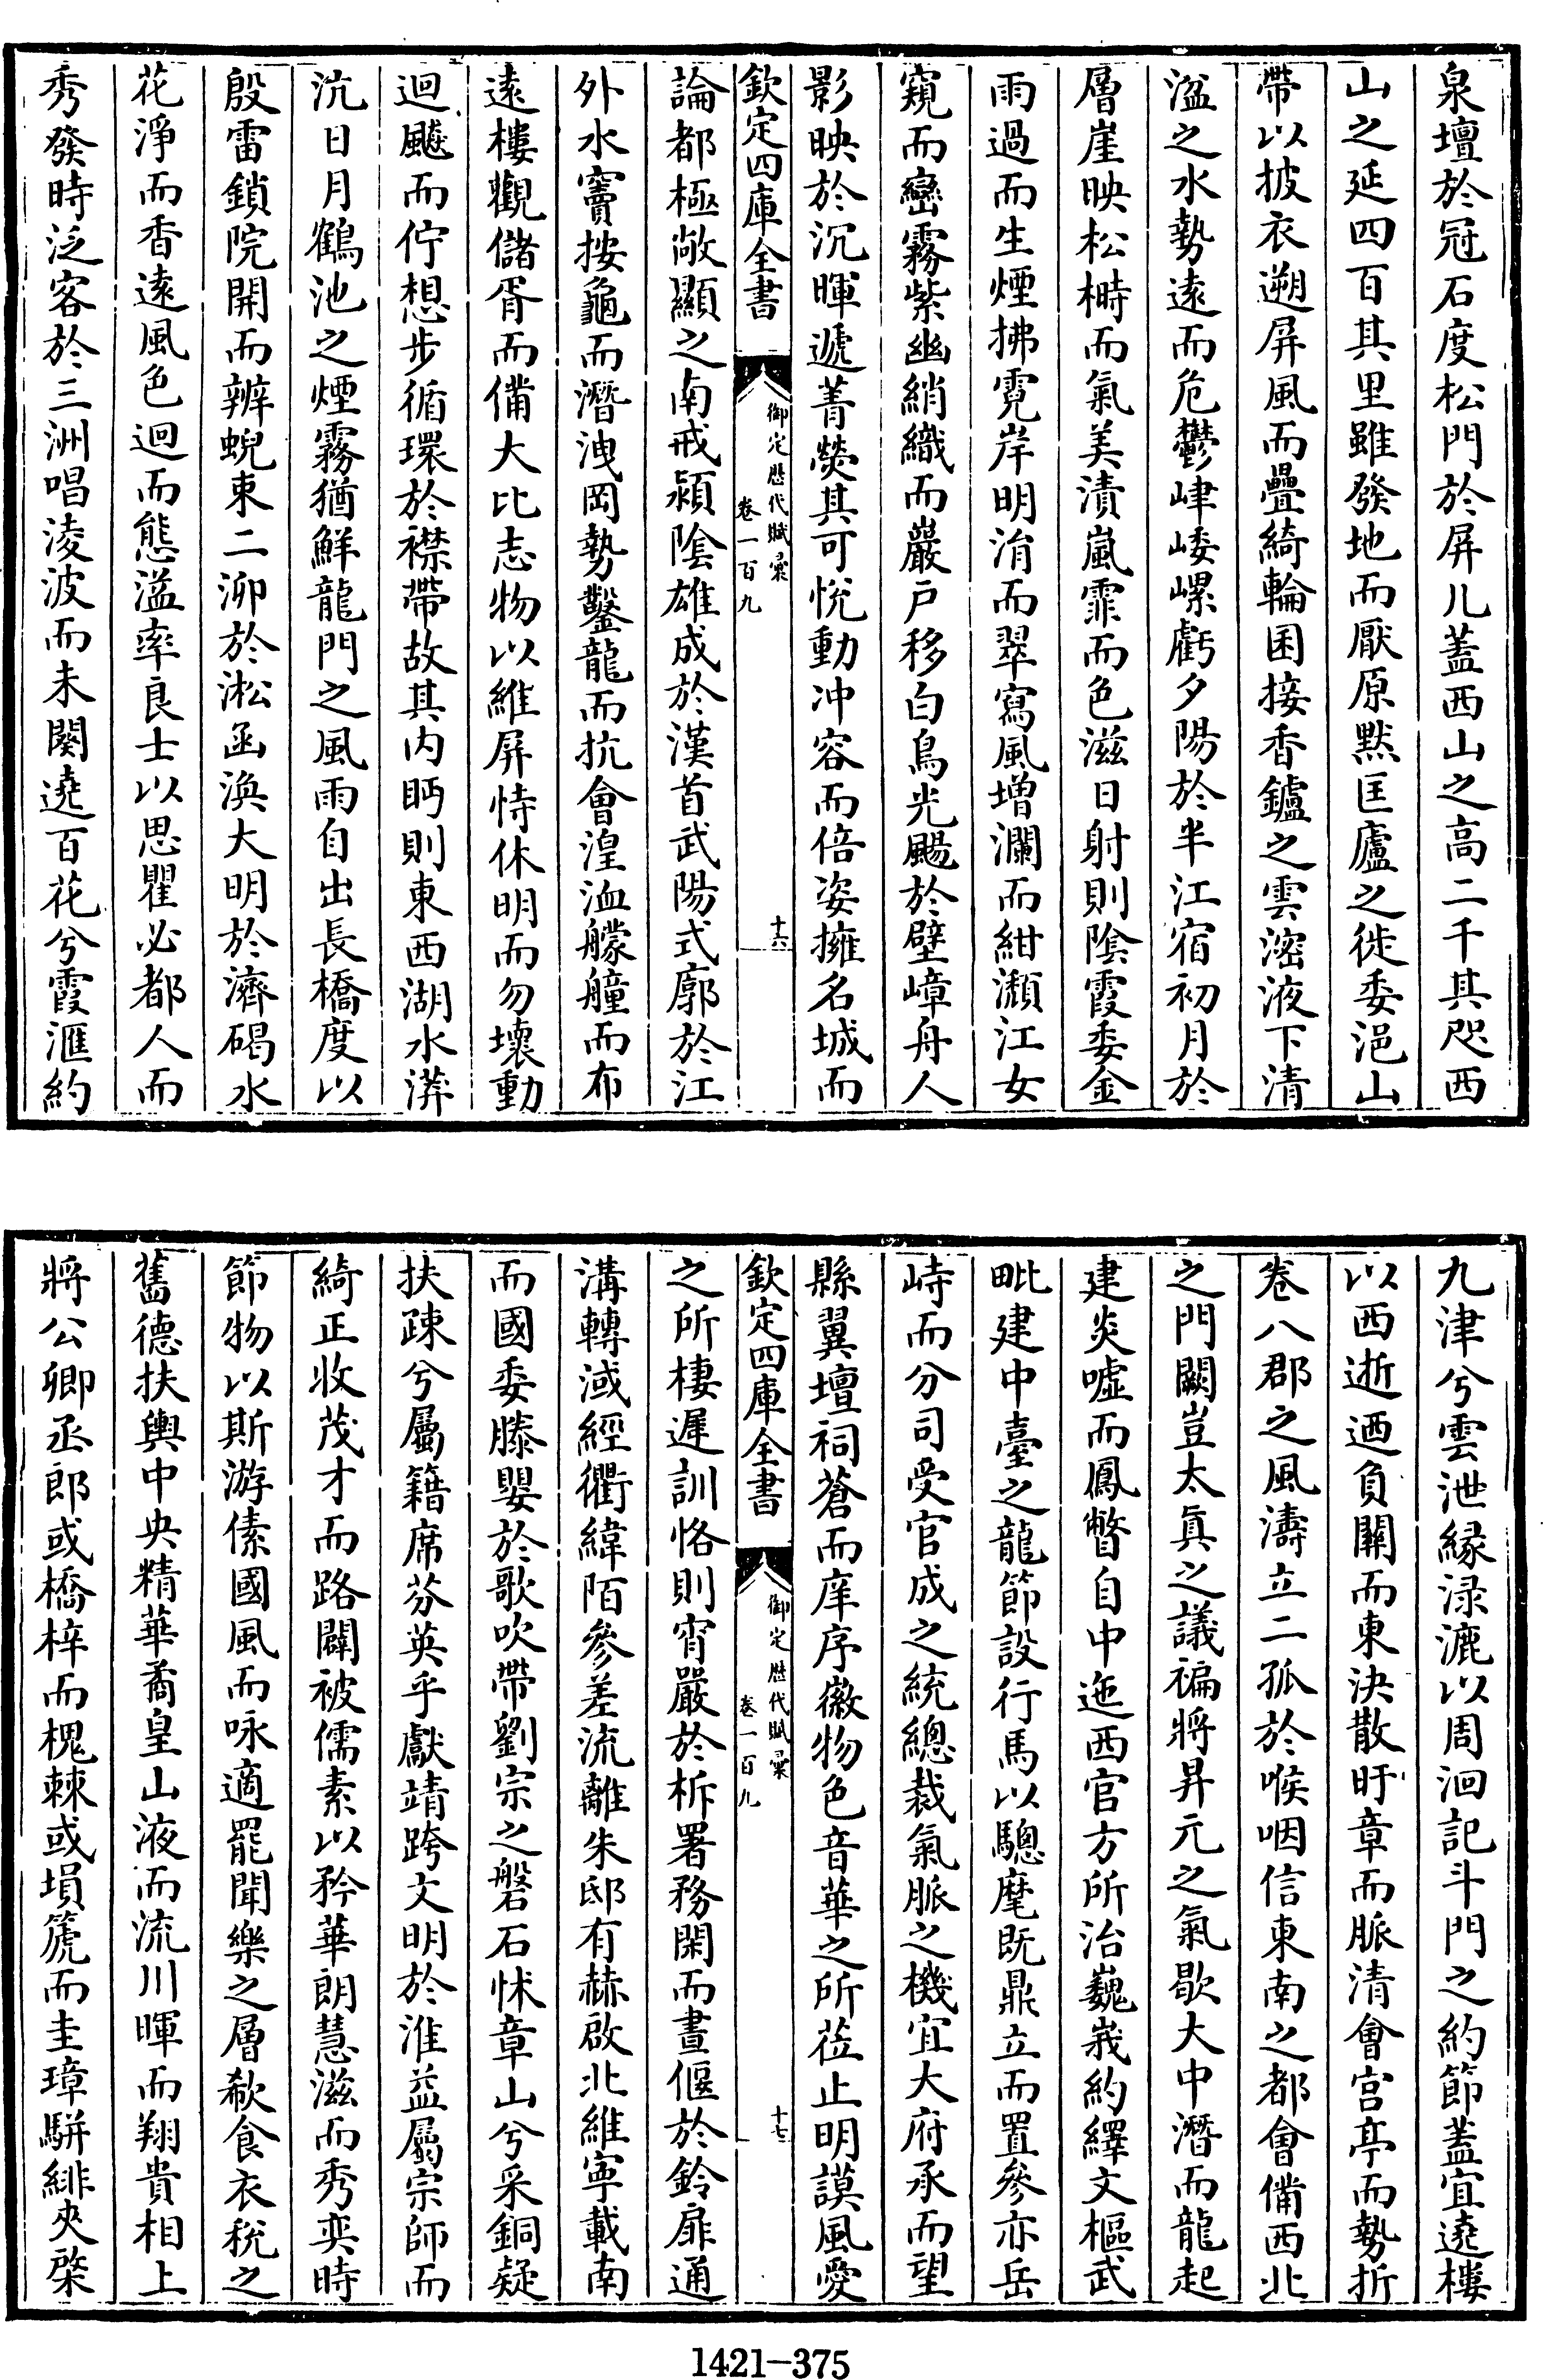 泉壇於冠石度松門於屏儿蓋西山之高二千其咫西
山之延四百其里雖發地而厭原黙匡廬之徙委浥山
帶以披衣遡屏風而疊綺輪囷接香鑪之雲滵液下清
溢之水勢遠而危鬱峍崣嵺虧夕陽於半江宿初月於
層崖映松榯而氣美漬嵐霏而色滋日射則陰霞委金
雨過而生煙拂霓岸明㳙而翠寫風增瀾而紺瀬江女
窺而巒霧紫幽綃織而巖戸移白鳥光颺於壁嶂舟人
影映於沉暉遞菁熒其可悅動冲容而倍姿擁名城而
欽定四庫全書
御定歷代賦彚
卷一百九
十六
論都極敞顯之南戒潁陰雄成於漢首武陽式廓於江
外水竇按龜而潛洩岡勢鑿龍而抗會湟洫艨艟而布
遠樓觀儲胥而備大比志物以維屏恃休明而勿壞動
迴飇而佇想步循環於襟帶故其内眄則東西湖水漭
沆日月鶴池之煙霧猶鮮龍門之風雨自出長橋度以
殷雷鎖院開而辨蜺東二泖於淞函渙大明於濟碣水
花淨而香遠風色迴而態溢率良士以思瞿必都人而
秀發時泛客於三洲唱淩波而未闋遶百花兮霞滙約
九津兮雲泄縁渌漉以周洄記斗門之約節蓋宜遶樓
以西逝迺負關而東決散盱章而脈清會宫亭而勢折
巻八郡之風濤立二孤於喉咽信東南之都會備西北
之門闕豈太眞之議褊將昇元之氣歇大中潛而龍起
建炎嘘而鳳瞥自中迤西官方所治巍峩約繹文樞武
毗建中臺之龍節設行馬以驄麾既鼎立而置參亦岳
峙而分司受官成之統總裁氣脈之機宜大府承而望
縣翼壇祠蒼而庠序徽物色音華之所莅止明謨風愛
欽定四庫全書
御定歷代賦彚
卷一百九
十七
之所棲遲訓恪則宵嚴於柝署務閑而晝偃於鈴扉通
溝轉淢經衢緯陌參差流離朱邸有赫啟北維寧載南
而國委滕嬰於歌吹帶劉宗之磐石怵章山兮采銅疑
扶疎兮屬籍席芬英乎獻靖跨文明於淮益屬宗師而
綺正收茂才而路闢被儒素以矜華朗慧滋而秀奕時
節物以斯游傃國風而咏適罷聞樂之層欷食衣税之
舊德扶輿中央精華矞皇山液而流川暉而翔貴相上
將公卿丞郎或橋梓而槐棘或塤篪而圭璋駢緋夾棨
1421-375